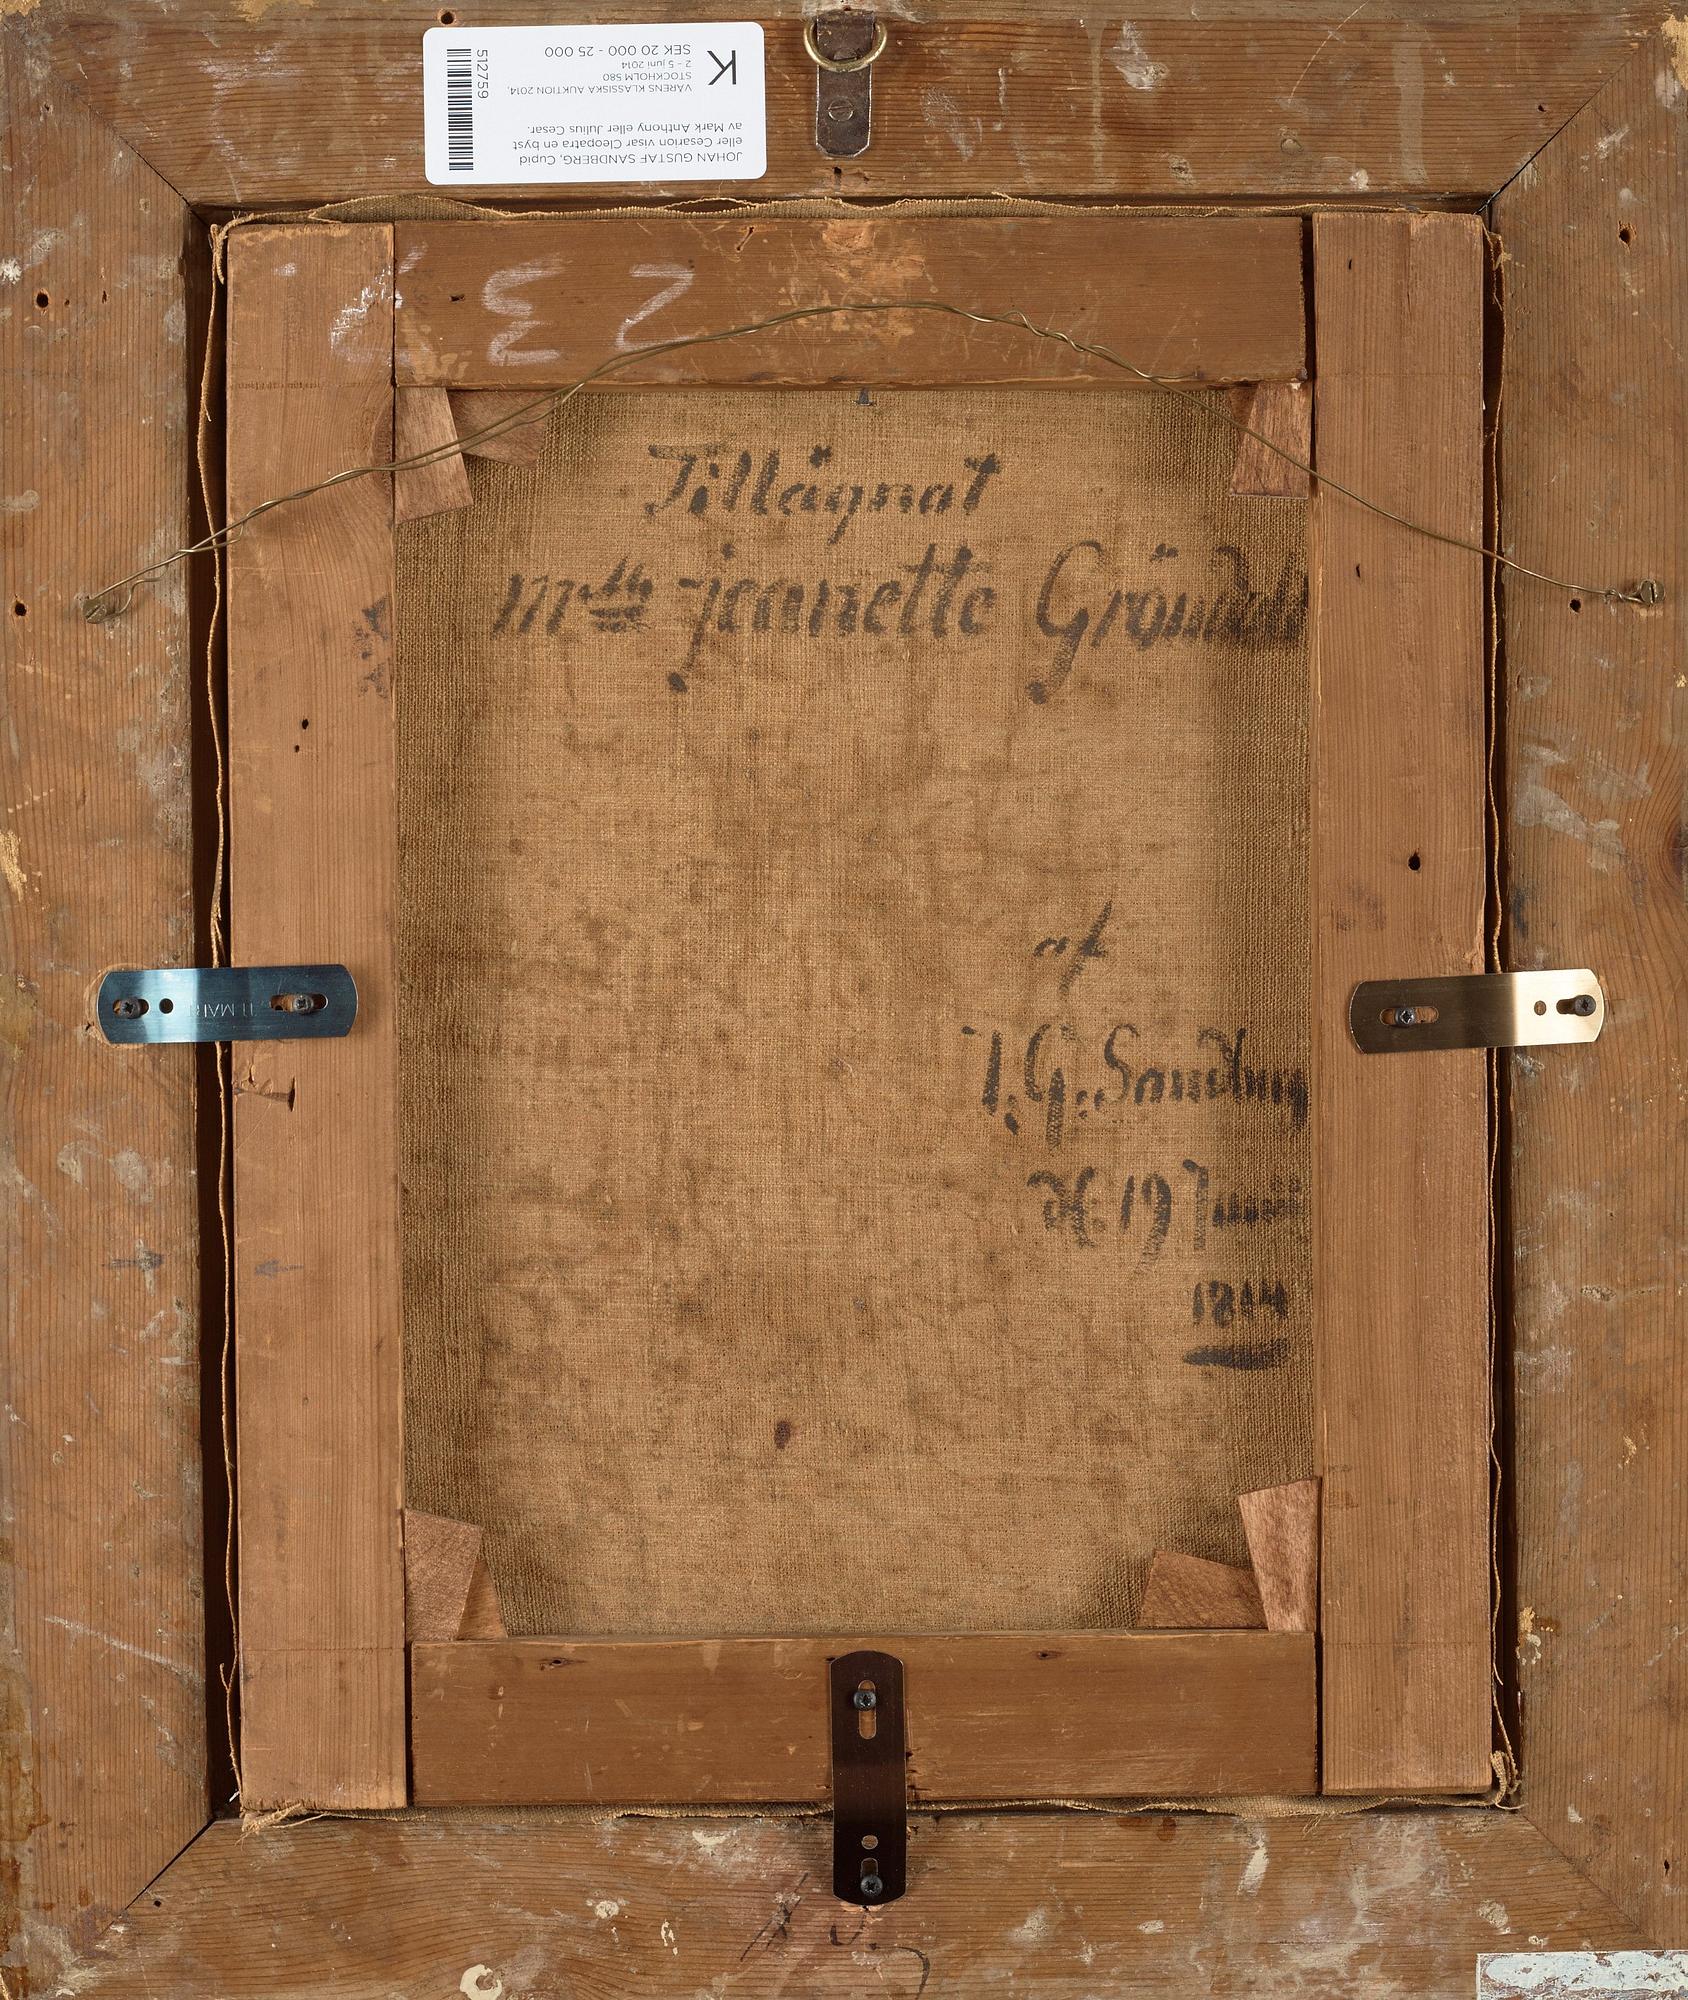 JOHAN GUSTAF SANDBERG, Cupid
eller Cesarion visar Cleopatra en byst
av Mark Anthony eller Julius Cesar.
VÅRENS KLASSISKA AUKTION 2014,
STOCKHOLM 580
2 - 5 juni 2014
SEK 20 000 - 25 000
K
512759
23
Tillägnat
mlle jeanette
af
J. G. Sandberg
d. 19 Junii
1814